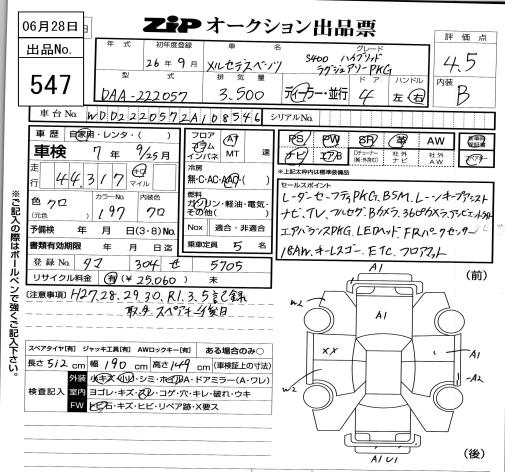 06月28日
ZIP オークション出品票
出品No.
547
年式 初年度登録 車名 グレード 評価点
26年9月 メルセデスベンツ S400 ハイブリッド ラグジュアリーPKG 4.5
型式 排気量 ドア ハンドル 内装
DAA-222057 3.500 ディーラー・並行 4 左・右 B
車台No. WDD2220572A108546 シリアルNo.
車歴 自家用・レンタ・( )
車検 7年9/25月
走行 44.317 キロ マイル
色 クロ (元色 ) カラーNo 197 内装色 クロ
予備検 年 月 日(3・8)No.
書類有効期限 年 月 日迄
登録No. 304 せ 5705
リサイクル料金 有(¥25,060) 未
フロア コラム インパネ AT MT 速
冷房 無・C・AC・AAC
燃料 ガソリン・軽油・電気・その他( )
Nox 適合・非適合
乗車定員 5名
PS PW SR 革 AW
ナビ エアB 社外ナビ 社外AW
※上記太枠内は標準装備品
セールスポイント
レーダーセーフティPKG. BSM. レーンキープアシスト
ナビ.TV.フルセグ.Bカメラ.360°カメラ.アンビエントライト
エアバランスPKG.LEDヘッド.FRパークセンサー
18AW.キーレスゴー.ETC.フロアマット
(注意事項) H27.28.29.30.R1.3.5記録
取.予 スペアキー後日
スペアタイヤ[有] ジャッキ工具[有] AWロックキー[有] ある場合のみ○
長さ512cm 幅190cm 高さ149cm (車検証上の寸法)
検査記入
外装 小キズ・小凹・シミ・ホイルA・ドアミラー(A・ワレ)
室内 ヨゴレ・キズ・スレ・コゲ・穴・キレ・破れ・ウキ
FW トビ石・キズ・ヒビ・リペア跡・X要ス
※ご記入の際はボールペンで強くご記入下さい。
A1
(前)
W2
A1
XX
A1
A2
W2
A1 U1
(後)